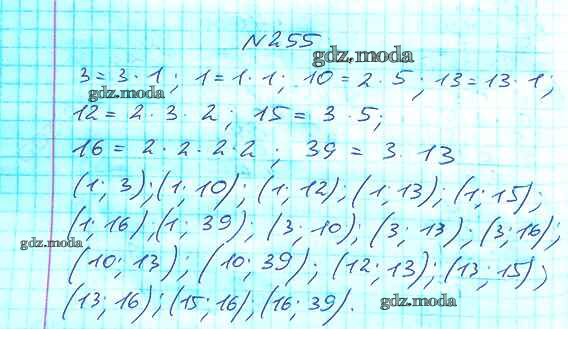 №255
gdz.moda
3 = 3 · 1; 1 = 1 · 1; 10 = 2 · 5; 13 = 13 · 1;
gdz.moda
12 = 2 · 3 · 2; 15 = 3 · 5;
16 = 2 · 2 · 2 · 2; 39 = 3 · 13
(1; 3); (1; 10); (1; 12); (1; 13); (1; 15);
(1; 16), (1; 39); (3; 10); (3; 13); (3; 16);
gdz.moda
(10; 13); (10; 39); (12; 13); (13; 15);
(13; 16); (15; 16); (16; 39).
gdz.moda